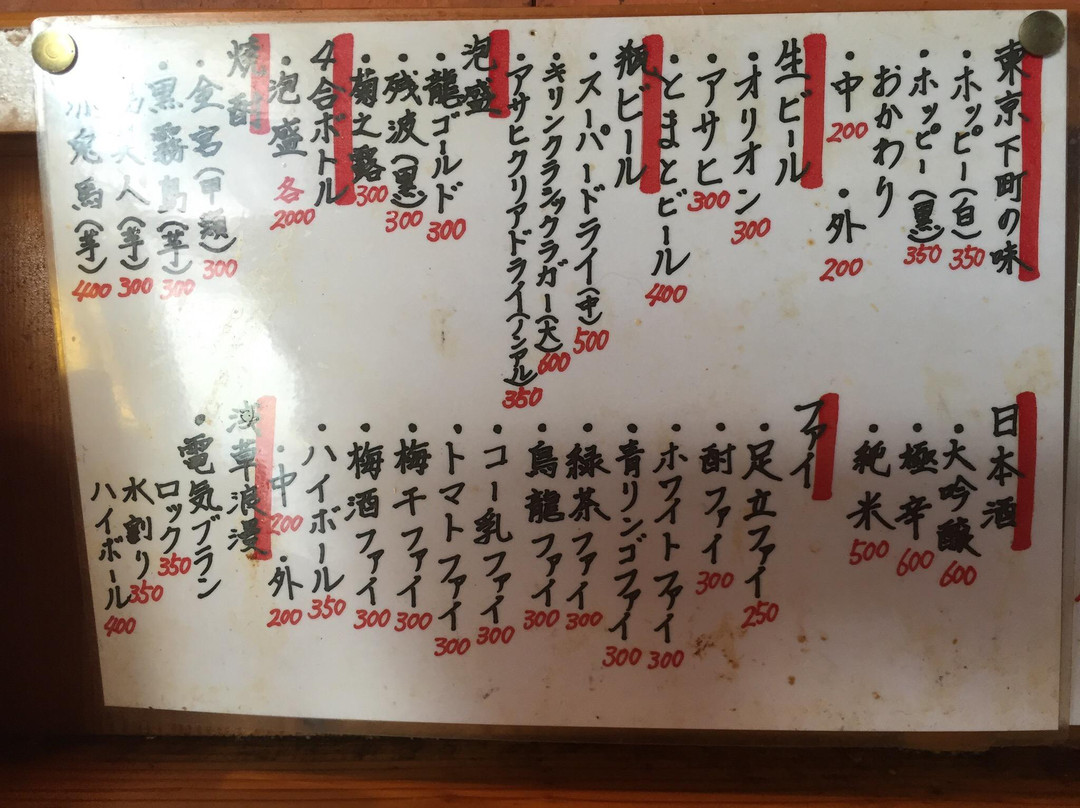 東京下町の味
・ホッピー(白) 350
・ホッピー(黒) 350
おかわり
・中 200 ・外 200
生ビール
・オリオン 300
・アサヒ 300
・とまとビール 400
瓶ビール
・スーパードライ(中) 500
・キリンクラシックラガー(大) 600
・アサヒクリアドライ(ノンアル) 350
泡盛
・龍ゴールド 300
・残波(黒) 300
・菊之露 300
4合ボトル
・泡盛 各2000
焼酎
・金宮(甲類) 300
・黒霧島(芋) 300
(芋) 300
兎馬(芋) 400
日本酒
・大吟醸 600
・極辛 600
・純米 500
ファイ
・足立ファイ 250
・酎ファイ 300
・ホワイトファイ 300
・青リンゴファイ 300
・緑茶ファイ 300
・烏龍ファイ 300
・コー乳ファイ 300
・トマトファイ 300
・梅干ファイ 300
・梅酒ファイ 300
・ハイボール 350
・中 200 ・外 200
浅草浪漫
・電気ブラン
ロック 350
水割り 350
ハイボール 400